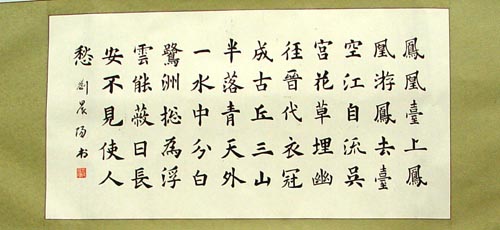 鳳凰臺上鳳
凰游鳳去臺
空江自流吳
宮花草埋幽
径晉代衣冠
成古丘三山
半落青天外
一水中分白
鷺洲総為浮
雲能蔽日長
安不見使人
愁